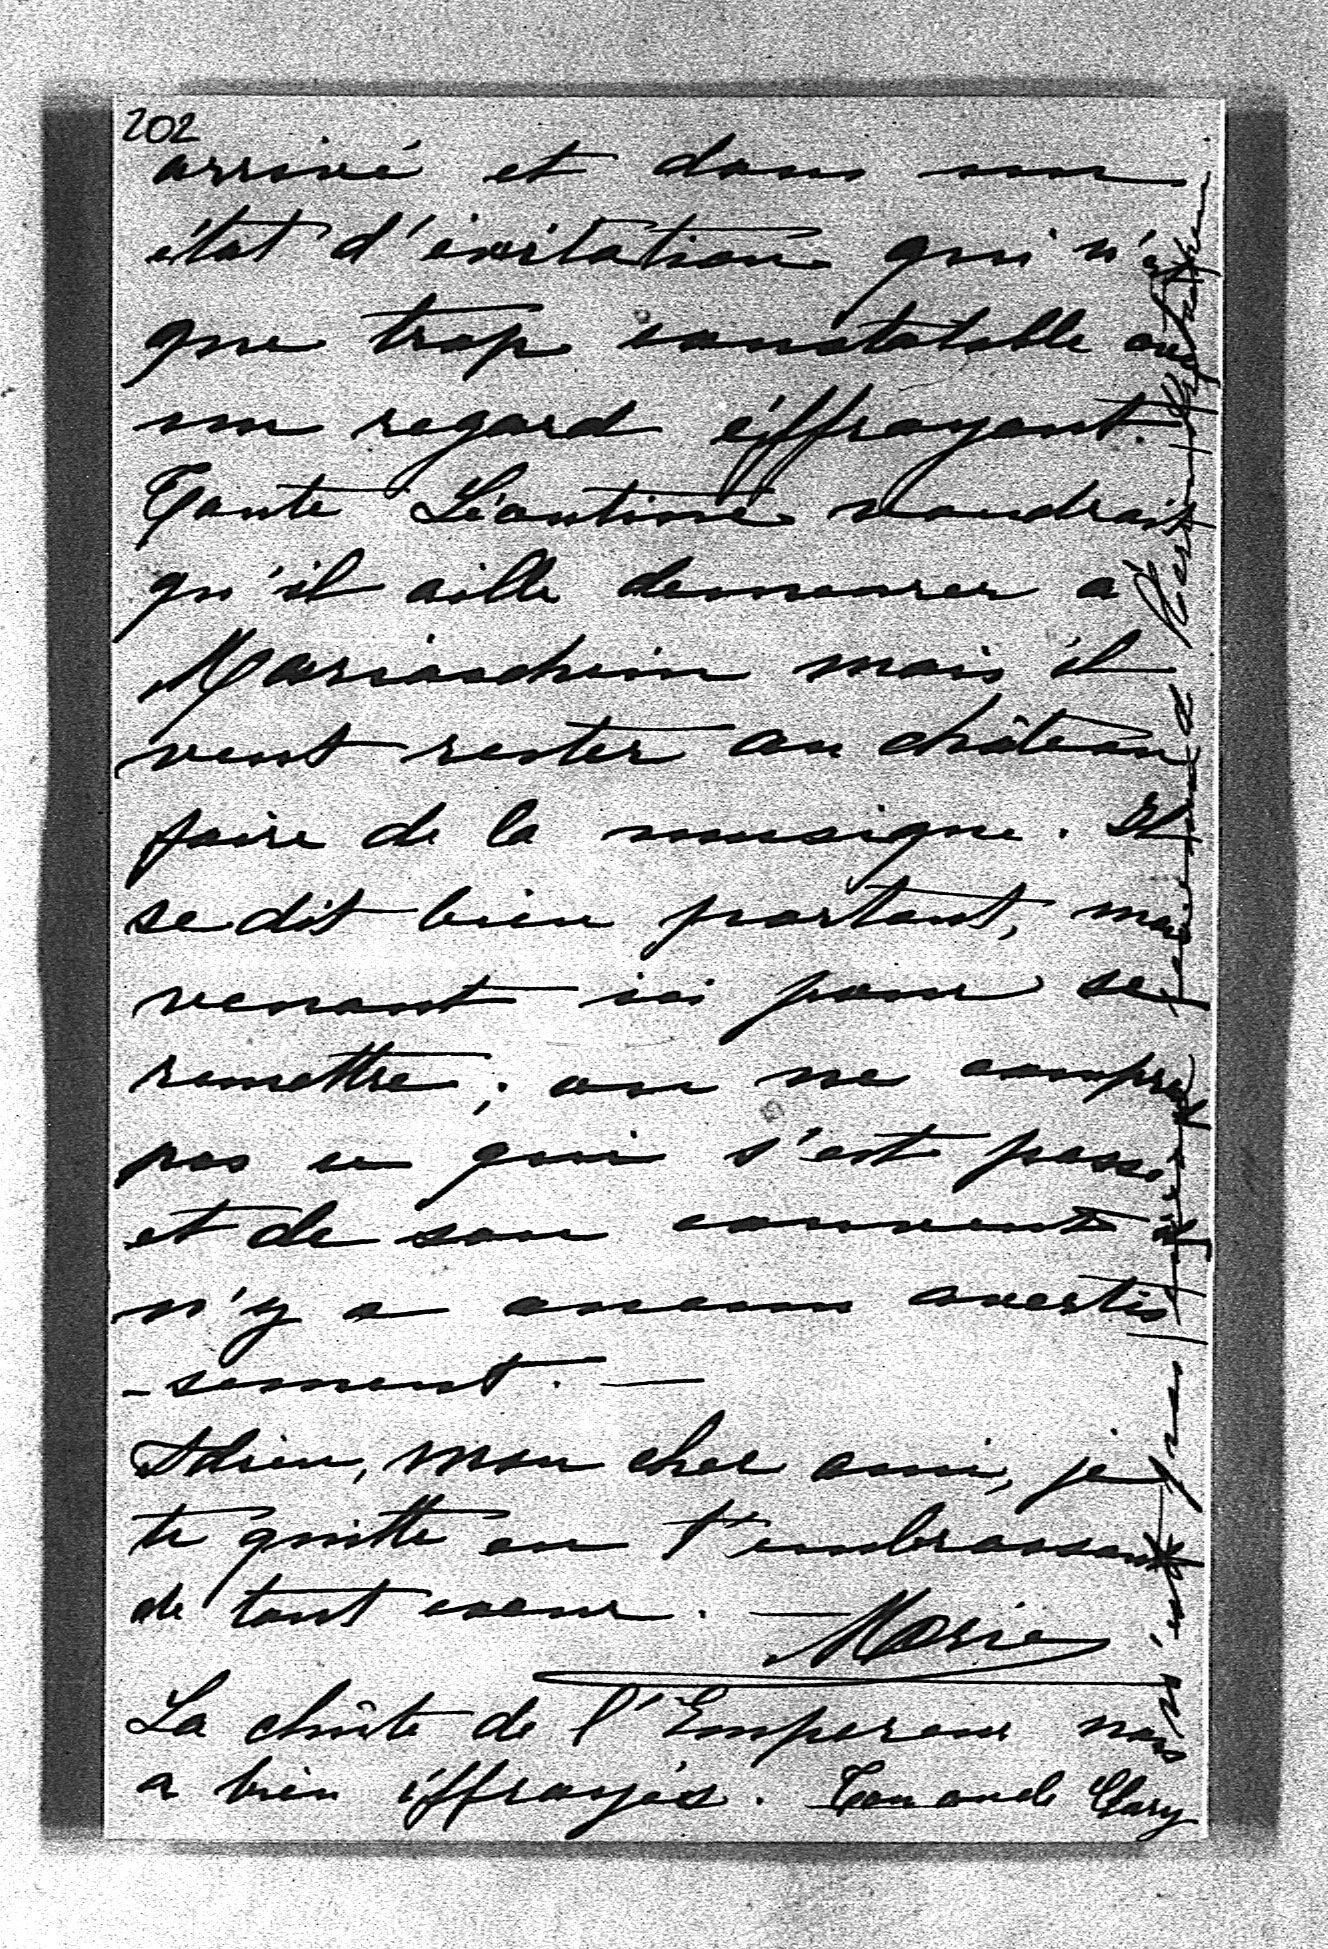 202
arrivé et dans un
état d'éxitation qui n'est
que trop constatable
un regard éffrayant.
Tante Léontine voudrait
qu'il aille demeurer a
Mariaschein mais il
veut rester au château
faire de la musique. Il
se dit bien portant, mais
venant ici pour se
remettre; on ne comprend
pas ce qui s'est passé
et de son couvent il
n'y a aucun avertis
-sement. —
Adieu, mon cher ami, je
te quitte en t'embrassant
de tout coeur. — Marie
La chûte de l'Empereur nous
a bien éffrayés. Ton oncle Clary